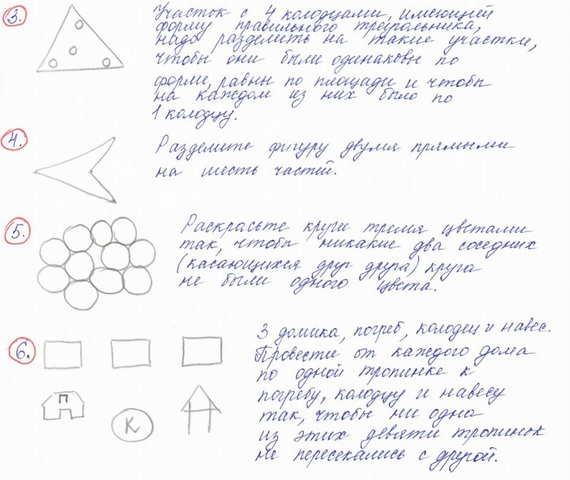 3. Участок с 4 колодцами, имеющий
форму правильного треугольника,
надо разделить на такие участки,
чтобы они были одинаковы по
форме, равны по площади и чтобы
на каждом из них было по
1 колодцу.
4. Разделите фигуру двумя прямыми
на шесть частей.
5. Раскрасьте круги тремя цветами
так, чтобы никакие два соседних
(касающихся друг друга) круга
не были одного цвета.
6. 3 домика, погреб, колодец и навес.
Провести от каждого дома
по одной тропинке к
погребу, колодцу и навесу
так, чтобы ни одна
из этих девяти тропинок
не пересекались с другой.
П
К